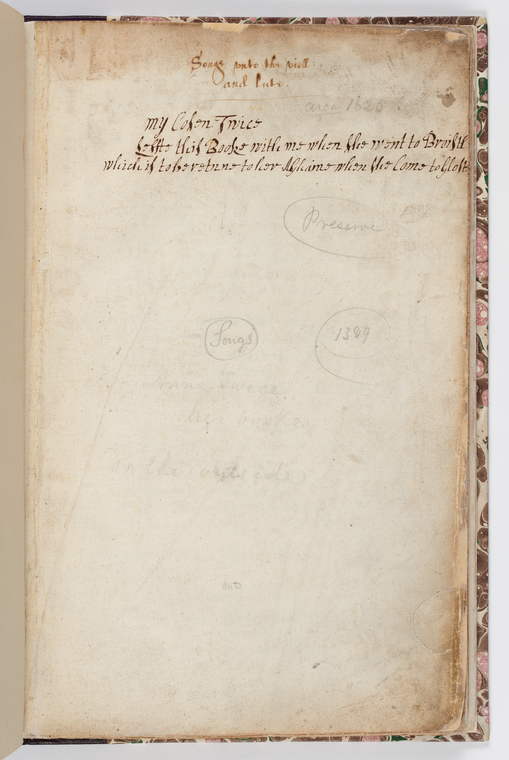 Songs vnto the violl
and lute.
circa 1620
my Cosen Twice
Leffte this Booke with me when shee went to Broisll
which is to be retnne to her Ahgaine when she Come to Glost
Preserve
Songs
1389
Anne Twice
her booke
on the outside